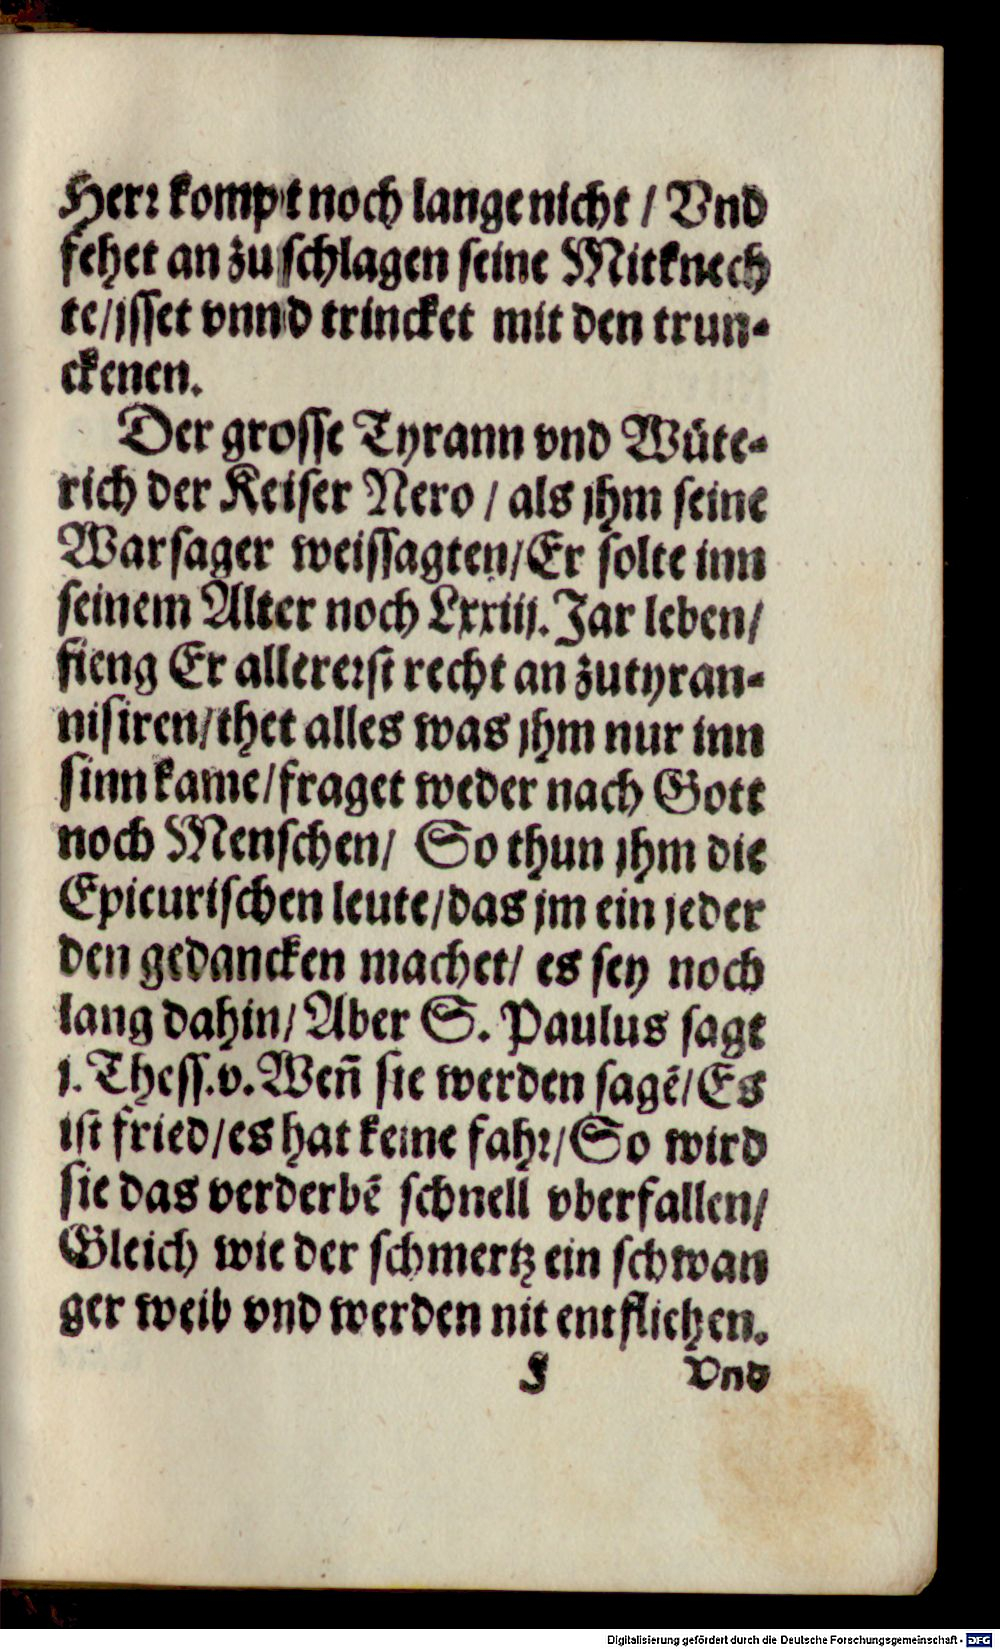 Herr kompt noch lange nicht / Vnd
fehet an zu schlagen seine Mitknech
te/ jsset vnnd trincket mit den trun-
ckenen.
Der grosse Tyrann vnd Wüte-
rich der Keiser Nero / als jhm seine
Warsager weissagten/ Er solte inn
seinem Alter noch Lxxiij. Jar leben/
fieng Er allererst recht an zutyran-
nisiren/ thet alles was jhm nur inn
sinn kame/ fraget weder nach Gott
noch Menschen/ So thun jhm die
Epicurischen leute/ das jm ein jeder
den gedancken machet/ es sey noch
lang dahin/ Aber S. Paulus sagt
j. Thess. v. Weñ sie werden sagẽ/ Es
ist fried/ es hat keine fahr/ So wird
sie das verderbẽ schnell vberfallen/
Gleich wie der schmertz ein schwan
ger weib vnd werden nit entfliehen.
J Vnd
Digitalisierung gefördert durch die Deutsche Forschungsgemeinschaft - DFG